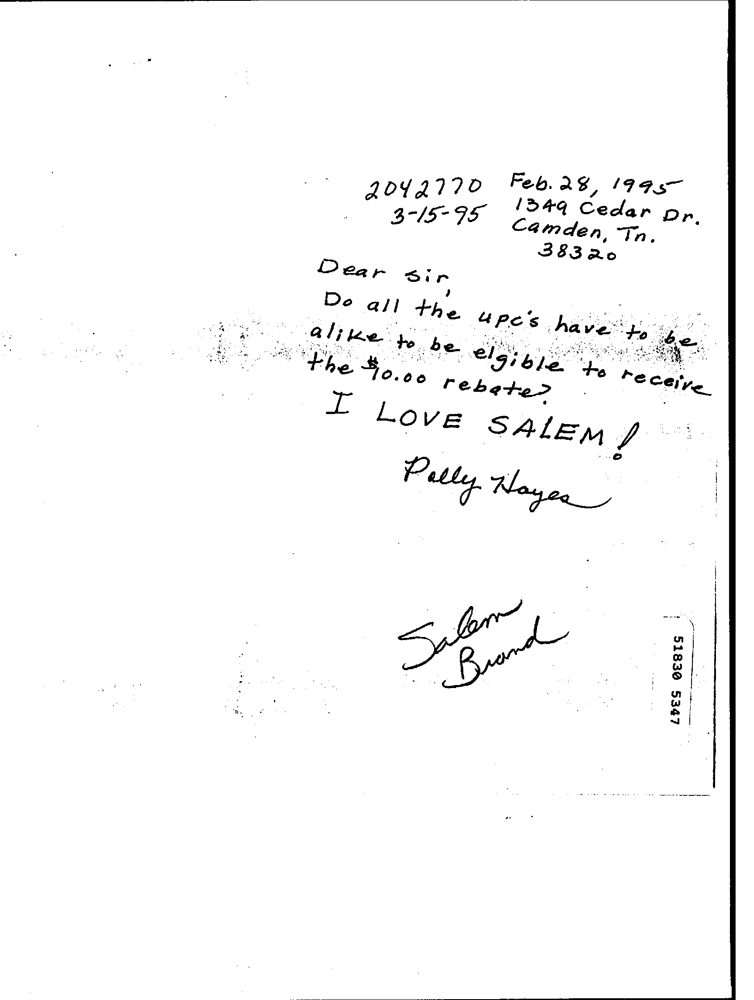 2042770 Feb. 28, 1995
3-15-95 1349 Cedar Dr.
Camden, Tn.
38320
Dear Sir,
Do all the upc's have to be
alike to be elgible to receive
the $10.00 rebate?
I LOVE SALEM!
Polly Hayes
Salem
Brand
51830 5347